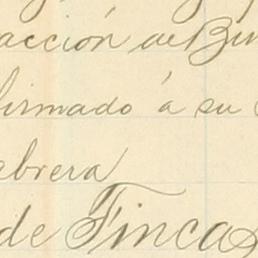 acción de Bu
firmado á su
ebrera
de Fincas